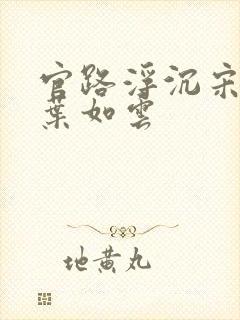 官路浮沉宋
葉如雲
地黄丸